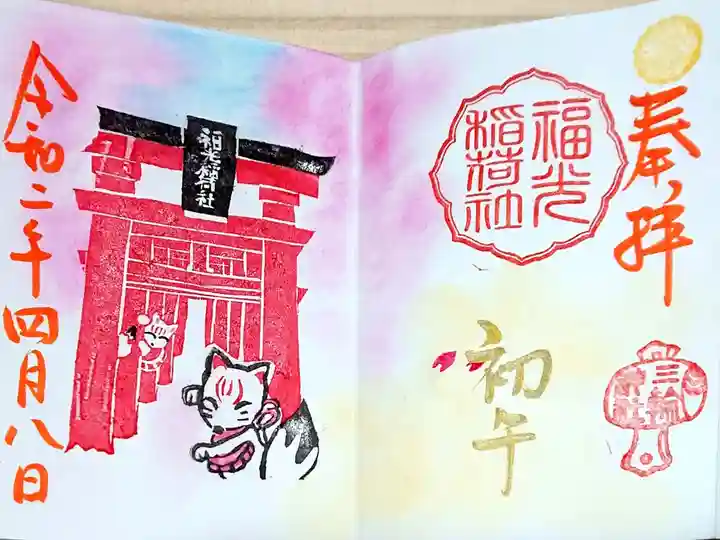 奉拝
福光
稲荷社
初午
福光稲荷社
令和二年四月八日